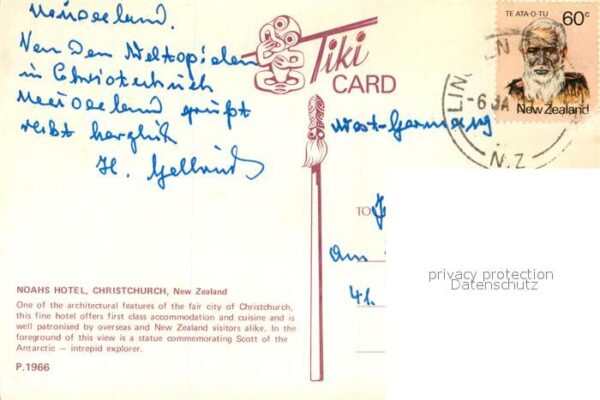 Neuseeland.
Von den Weltspielen
in Christchurch
Neuseeland grüßt
recht herzlich
H.
Tiki
CARD
TE ATA-O-TU 60c
New Zealand
LIN N
-6 JA
N.Z
West-Germany
TO
Am
41.
privacy protection
Datenschutz
NOAHS HOTEL, CHRISTCHURCH, New Zealand
One of the architectural features of the fair city of Christchurch,
this fine hotel offers first class accommodation and cuisine and is
well patronised by overseas and New Zealand visitors alike. In the
foreground of this view is a statue commemorating Scott of the
Antarctic — intrepid explorer.
P.1966